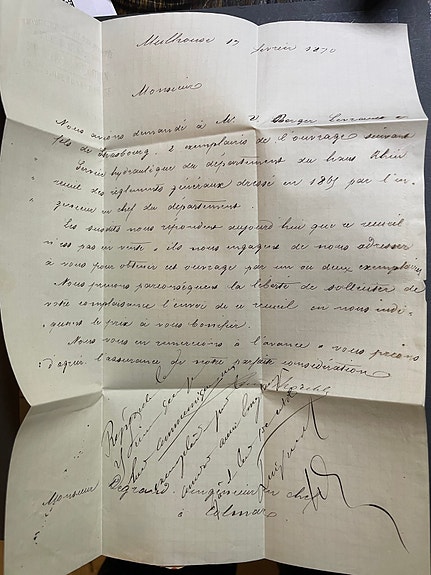 Mulhouse 17 février 1870
Monsieur
Nous avons demandé à M. V. Berger Levrault &
fils de Strasbourg, 2 exemplaires de l'ouvrage suivant
" Service hydraulique du département du haut Rhin
" recueil des règlements généraux dressé en 1865 par l'in-
" génieur en chef du département.
Les susdits nous répondent aujourd'hui que ce recueil
n'est pas en vente & ils nous engagent de nous adresser
à vous pour obtenir cet ouvrage par un ou deux exemplaires
Nous prenons par conséquent la liberté de solliciter de
votre complaisance l'envoi de ce recueil en nous indi-
-quant le prix à vous bonifier.
Nous vous en remercions à l'avance & vous prions
d'agréer l'assurance de notre parfaite considération
Monsieur Degrand ingénieur en chef
à Colmar